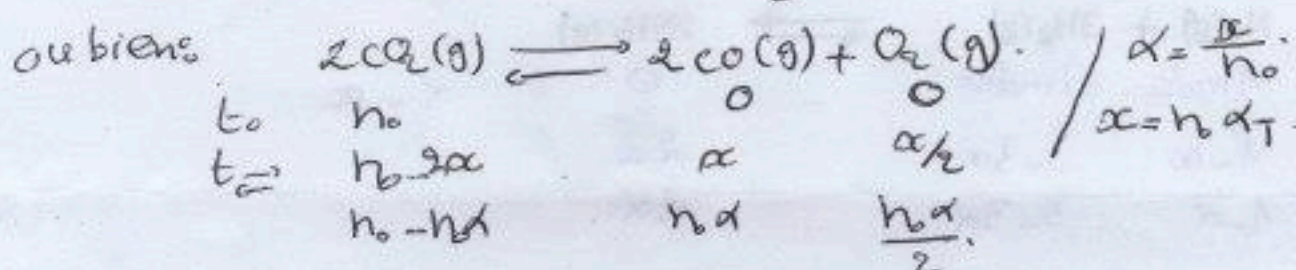 ou bien: 2CO₂(g) ⇌ 2CO(g) + O₂(g). / α = x/n₀.
t₀ n₀ 0 0 / x = n₀ α_T.
t⇌ n₀-2x x x/2
n₀ - n₀α n₀α n₀α/2.